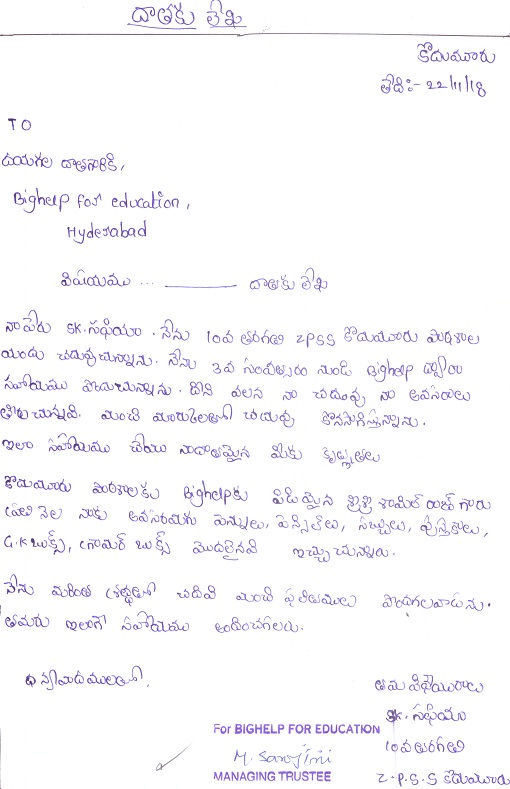 దాతకు లేఖ
కొదుమూరు
తేది:- 22/11/18
TO
దయగల దాతగారికి,
Bighelp for education,
Hyderabad
విషయము ... దాతకు లేఖ
నాపేరు SK.సఫియా. నేను 10వ తరగతి ZPSS కొదుమూరు పాఠశాల
యందు చదువుచున్నాను. నేను 3వ సంవత్సరం నుండి Bighelp ద్వారా
సహాయము పొందుచున్నాను. దీని వలన నా చదువు నా అవసరాలు
తీరుచున్నవి. మంచి మార్కులతో చదువు కొనసాగిస్తున్నాను.
ఇలా సహాయము చేయు మీకు కృతజ్ఞతలు
కొదుమూరు పాఠశాలకు Bighelpకు శ్రీశ్రీ గారు
ప్రతి నెల నాకు అవసరమగు పెన్నులు, పెన్సిల్‌లు, సబ్బులు, పుస్తకాలు,
G.K బుక్స్, గ్రామర్ బుక్స్ మొదలైనవి ఇచ్చుచున్నారు.
నేను మరింత శ్రద్ధతో చదివి మంచి ఫలితములు పొందగలవాడును.
తమరు ఇలాగే సహాయము అందించగలరు.
ధన్యవాదములతో.
తమ విధేయురాలు
SK. సఫియా
10వ తరగతి
Z.P.S.S కొదుమూరు
For BIGHELP FOR EDUCATION
M. Sarojini
MANAGING TRUSTEE